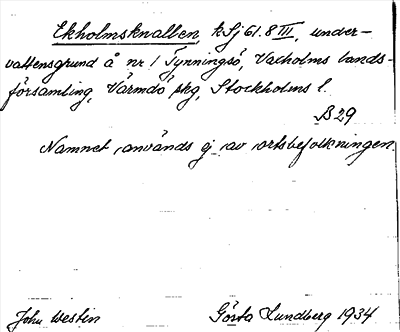 Ekholmsknallen, k Sj 61.8 III, under-
vattensgrund å nr 1 Tynningsö, Vaxholms lands-
församling, Värmdö skg, Stockholms l.
B 29
Namnet används ej av ortsbefolkningen.
John Westin Gösta Lundberg 1934